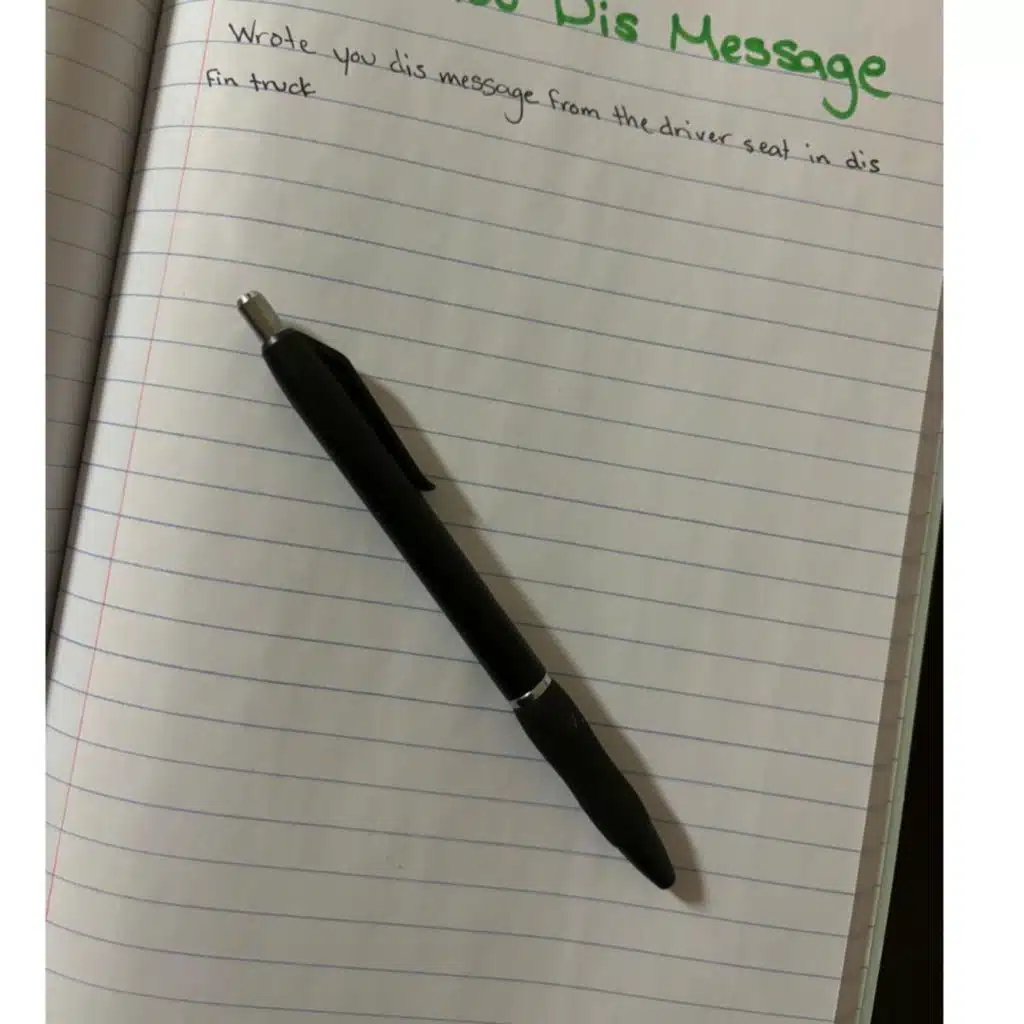 Dis Message
Wrote you dis message from the driver seat in dis
fin truck